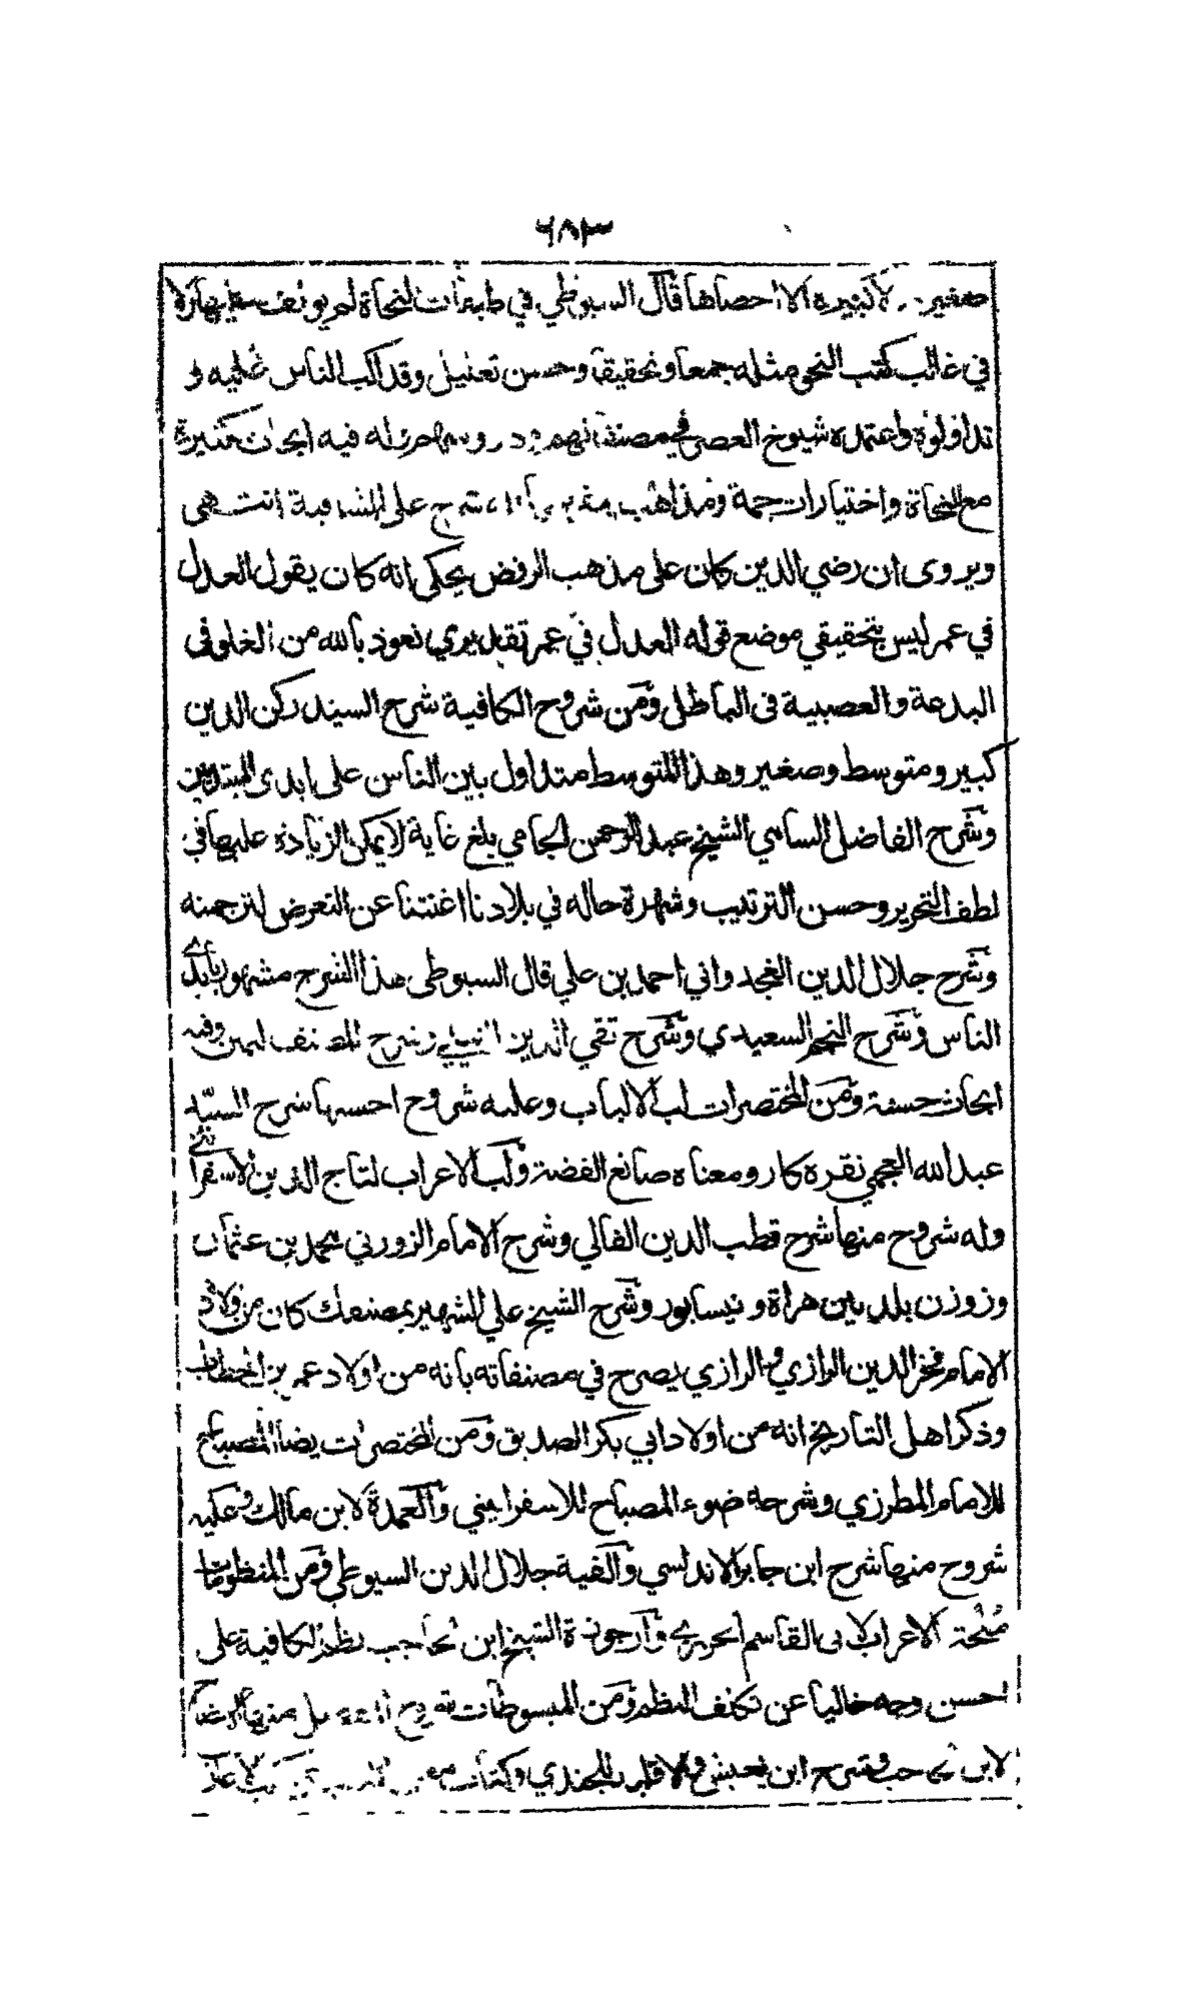 ٦٨٣
صغيرة ولا كبيرة الا احصاها قال السيوطي في طبقات النحاة لم يؤلف عليها بل ولا
في غالب كتب النحو مثله جمعا وتحقيقا وحسن تعليل وقد اكب الناس عليه و
تداولوه واعتمده شيوخ العصر في مصنفاتهم ودروسهم وله فيه ابحاث كثيرة
مع النحاة واختيارات جمة ومذاهب شرح على الشافية انتهى
ويروى ان رضي الدين كان على مذهب الرفض يحكى انه كان يقول العدل
في عمر ليس بتحقيقي موضع قوله العدل في عمر تقديري نعوذ بالله من الغلو فى
البدعة والعصبية فى الباطل ومن شروح الكافية شرح السيد ركن الدين
كبير ومتوسط وصغير وهذا المتوسط متداول بين الناس على ايدى المبتدئين
وشرح الفاضل السامي الشيخ عبد الرحمن الجامي بلغ غاية لا يمكن الزيادة عليها في
لطف التحرير وحسن الترتيب وشهرة حاله في بلادنا اغنتنا عن التعرض لترجمته
وشرح جلال الدين الغجدواني احمد بن علي قال السيوطى هذا الشرح مشهور بايدي
الناس وشرح النجم السعيدي وشرح تقي الدين وشرح المصنف وفيه
ابحاث حسنة ومن المختصرات لب الالباب وعليه شروح احسنها شرح السيد
عبد الله العجمي نقره كار ومعناه صانع الفضة ولب الاعراب لتاج الدين الاسفرائني
وله شروح منها شرح قطب الدين الفالي وشرح الامام الزوزني محمد بن عثمان
وزوزن بلد بين هراة ونيسابور وشرح الشيخ علي الشهير بمصنفك كان من اولاد
الامام فخر الدين الرازي والرازي يصرح في مصنفاته بانه من اولاد عمر بن الخطاب
وذكر اهل التاريخ انه من اولاد ابي بكر الصديق ومن المختصرات يضا المصباح
للامام المطرزي وشرحه ضوء المصباح للاسفرايني والعمدة لابن مالك وعليه
شروح منها شرح ابن جابر الاندلسي والفية جلال الدين السيوطي ومن المنظومات
ملحة الاعراب لابى القاسم الحريري وارجوزة الشيخ ابن الحاجب نظم الكافية على
احسن وجه خاليا عن تكلف النظم ومن المبسوطات شروح المفصل منها الايضاح
لابن الحاجب وشرح ابن يعيش والاقليد للجندي وكتاب